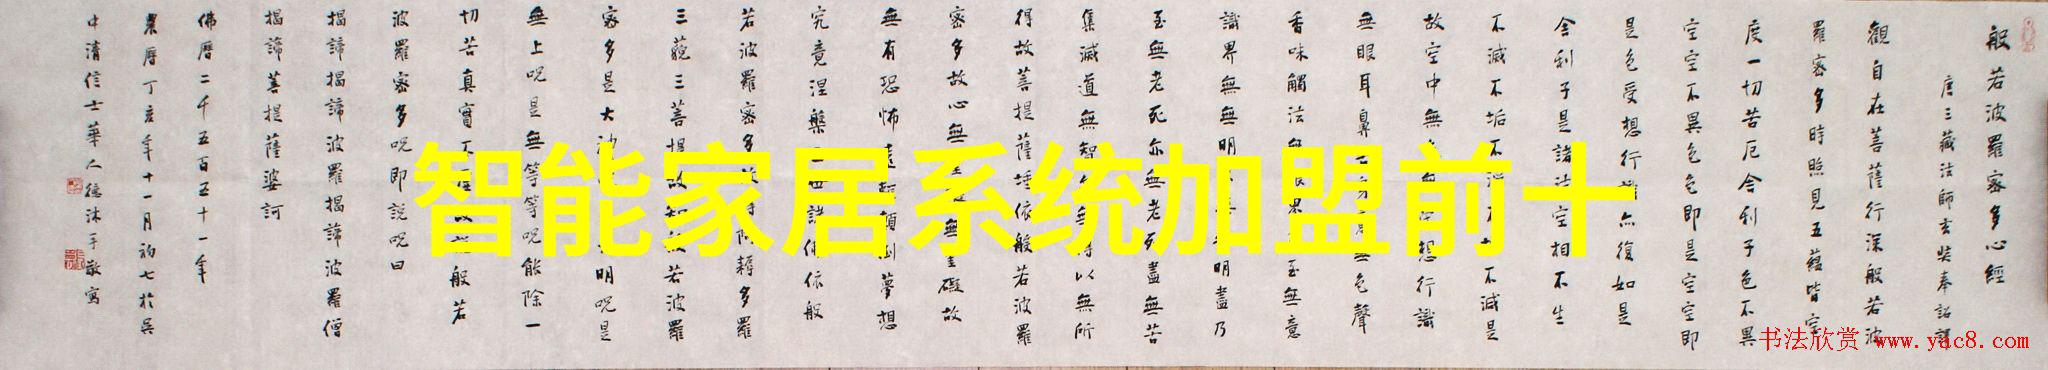 般若波羅密多心經
唐三藏法師玄奘奉詔譯
觀自在菩薩行深般若波
羅密多時照見五蘊皆空
度一切苦厄舍利子色不異
空空不異色色即是空空即
是色受想行識亦復如是
舍利子是諸法空相不生
不滅不垢不不不減是
故空中無想行識
無眼耳鼻無色聲
香味觸法無眼界至無意
識界無無明無明盡乃
至無老死亦無老死盡無苦
集滅道無智無得以無所
得故菩提薩埵依般若波羅
密多故心無無罣礙故
無有恐怖遠顛倒夢想
究竟涅槃世諸佛依般
若波羅密多得阿耨多羅
三藐三菩提故知般若波羅
密多是大神明呪是
無上呪是無等等呪能除一
切苦真實不虛故說般若
波羅密多呪即說呪曰
揭諦揭諦波羅揭諦波羅僧
揭諦菩提薩婆訶
佛曆二千五百五十一年
農曆丁亥年十一月初七於吳
中清信士華人德沐手敬寫
智能家居系统加盟前十
书法欣赏 www.yac8.com